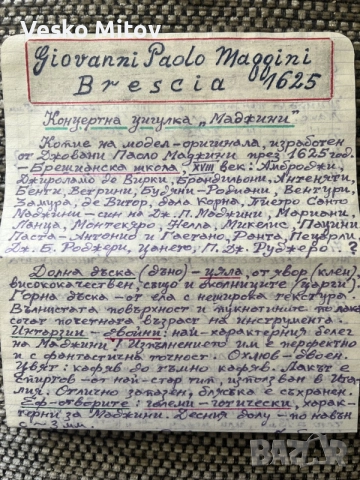 Vesko Mitov
Giovanni Paolo Maggini
Brescia 1625
Концертна цигулка „Маджини"
Копие на модел-оригинала, изработен
от Джовани Паоло Маджини през 1625 год.
- Брешианска школа, XVII век: Амброджи,
Джироламо де Виоки, Брандильони, Антенятти,
Бенти, Ветрини, Будяни-Родиани, Вентури,
Замура, де Витор, дала Корна, Пиетро Санто
Маджини - син на Дж. П. Маджини, Мариани,
Ланца, Монтекяро, Нелла, Микелис, Пацини
Паста - Антонио и Гаетано, Ранта, Пецарди
Дж. Б. Роджери, Цането, П. Дж. Руджеро...?
Долна дъска (дъно) - цяла, от явор (клен)
висококачествен, също и околниците (царги).
Горна дъска - от ела с неширока текстура.
Вълнистата повърхност и пукнатините по лака
сочат почетната възраст на инструмента.
Интарзии - двойни - най-характерния белег
на Маджини! Изпълнението им е перфектно
и с фантастична точност. Охлюв - двоен.
Цвят: кафяв до тъмно кафяв. Лакът е
спиртов - от най-стар тип, използван в Ита-
лия. Отлично запазен, блясъка е съхранен.
Еф-отворите: големи - готически, харак-
терни за Маджини. Десния долу - по навън
с ~ 3 мм.
bazar.bg